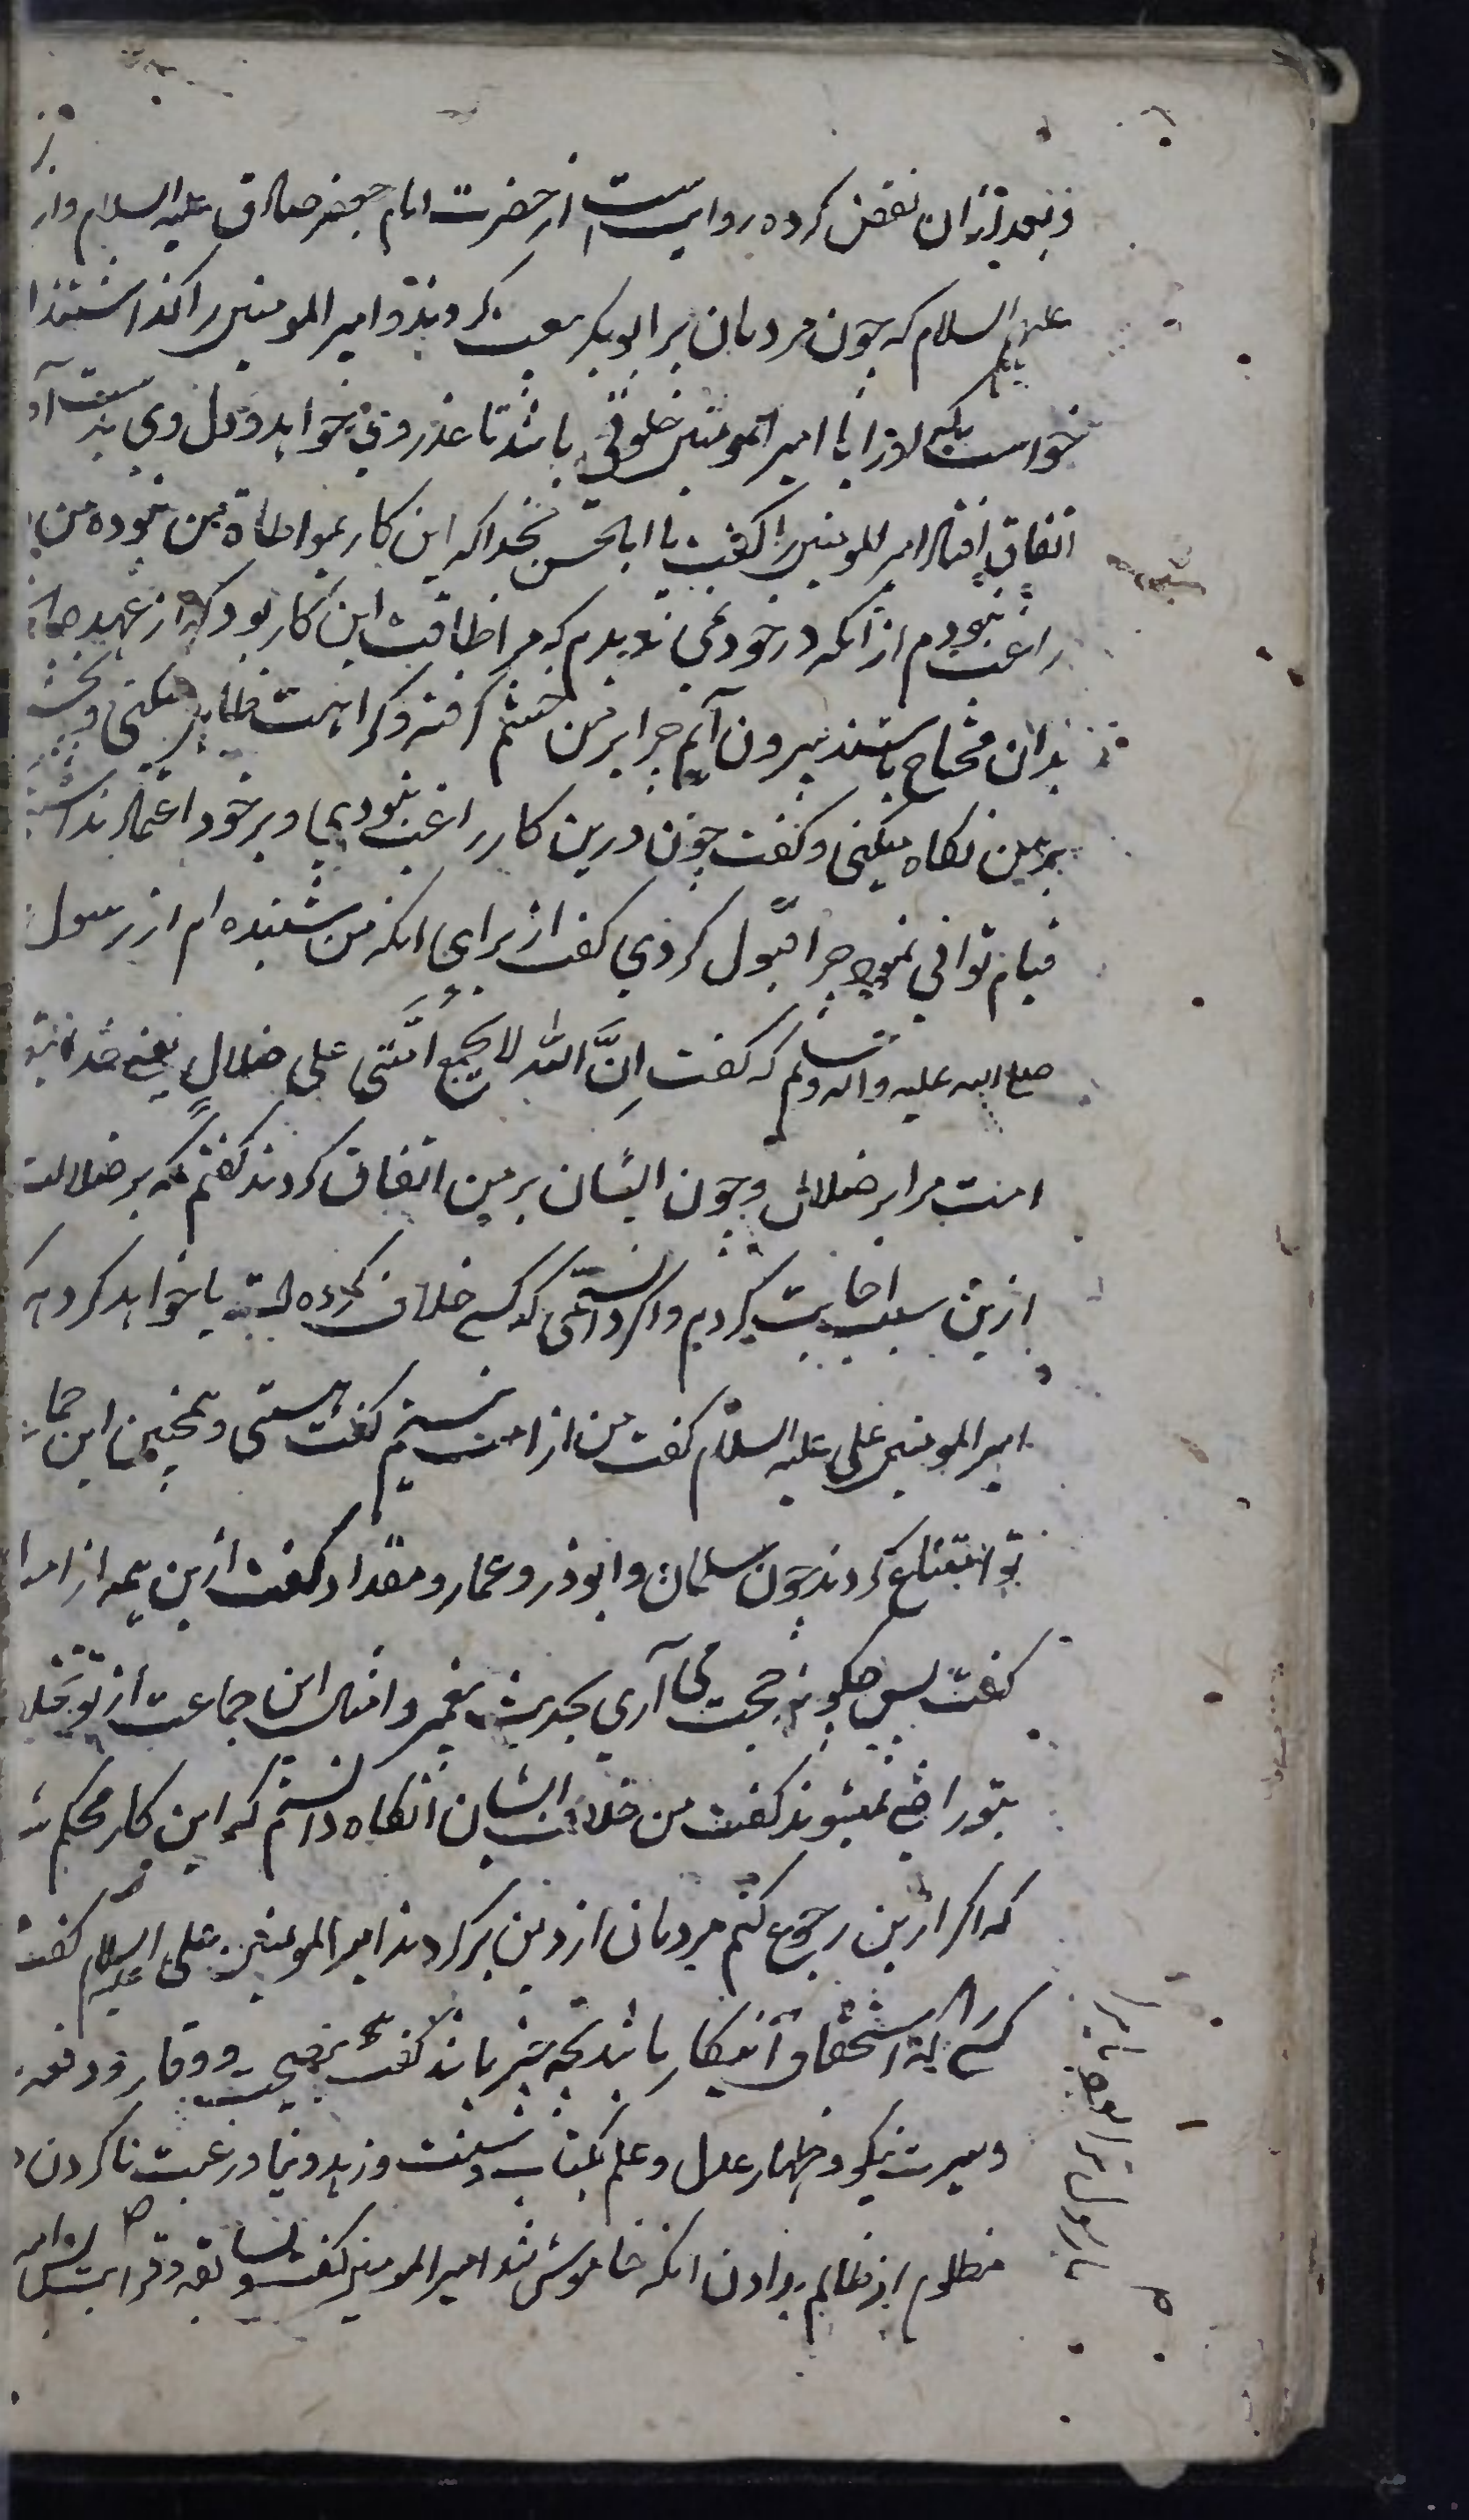 و بعد ازان نقض کرده روایت است از حضرت امام جعفر صادق علیه السلام و از
علیهم السلام که چون مردمان بر ابوبکر بیعت کردند و امیر المومنین را گذاشتند ا
خواست که او را با امیر المومنین خلوتی باشد تا عذر وی خواهد و دل وی بدست آ
اتفاق افتاد امیر المومنین را گفت یا ابا الحسن بخدا که این کار بمواطاة من نبوده من
راغب نبودم از آنکه در خود نمی دیدم که مرا طاقت این کار بود که از عهده
بدان محتاج باشند بیرون آیم چرا بر من خشم گرفته و کراهت ظاهر میکنی و
بر من نگاه میکنی و گفت چون درین کار راغب نبودی و بر خود اعتماد نداشتی
قیام توانی نمود چرا قبول کردی گفت از برای انکه من شنیده ام از رسول
صلی الله علیه و اله و سلم که گفت اِنَّ الله لا یجمع اُمَّتی علی ضلالٍ یعنی خدا
امت مرا بر ضلال و چون ایشان بر من اتفاق کردند گفتم که بر ضلالت
ازین سبب اجابت کردم و اگر دانستمی که کسی خلاف کرده است یا خواهد کرد
امیر المومنین علی علیه السلام گفت من از امت نیستم گفت هستی و همچنین این جما
تو امتناع کردند چون سلمان و ابوذر و عمار و مقداد گفت ازین همه از امـ
گفت پس چگونه حجت می آری بحدیث پیغمبر و امثال این جماعت از تو تخلـ
بتو راضی نمیشوند گفت من خلاف ایشان آنگاه دانستم که این کار محکم شد
که اگر ازین رجوع کنم مردمان از دین برگردند امیر المومنین علی علیه السلام گفت
کسی که استحقاق آنکار باشد بچه چیز باشد گفت بنصیحت و وقار و دفع
و سیرت نیکو و اظهار عدل و علم بکتاب و سنت و زهد دنیا و رغبت نا کردن
مظلوم از ظالم بدادن آنکه خاموش شد امیر المومنین گفت و سابقه و قرابت